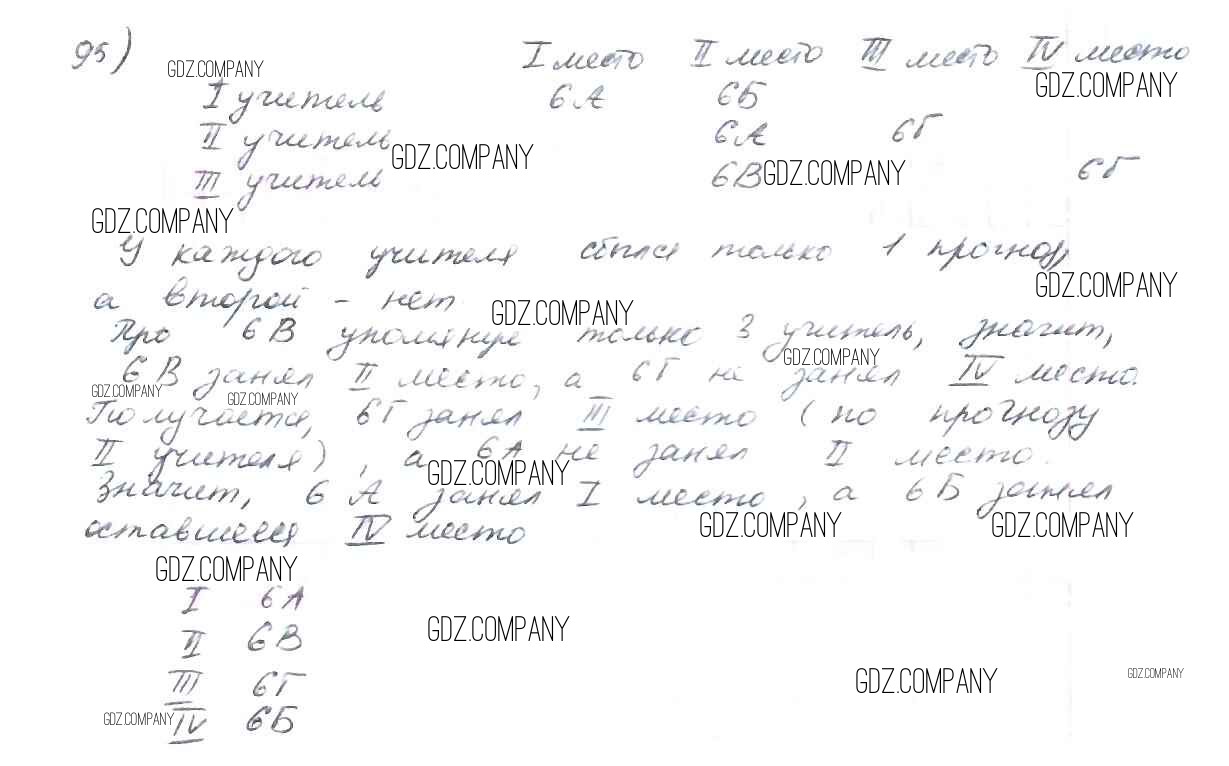 95)
I место II место III место IV место
GDZ.COMPANY
GDZ.COMPANY
I учитель 6А 6Б
II учитель 6А 6Г
GDZ.COMPANY
III учитель 6В GDZ.COMPANY 6Г
GDZ.COMPANY
У каждого учителя сбылся только 1 прогноз,
GDZ.COMPANY
а второй - нет
GDZ.COMPANY
Про 6В упомянул только 3 учитель, значит,
GDZ.COMPANY
6В занял II место, а 6Г не занял IV место.
GDZ.COMPANY GDZ.COMPANY
Получается, 6Г занял III место (по прогнозу
II учителя), а 6А не занял II место.
GDZ.COMPANY
Значит, 6А занял I место, а 6Б занял
GDZ.COMPANY GDZ.COMPANY
оставшееся IV место
GDZ.COMPANY
I 6А
GDZ.COMPANY
II 6В
III 6Г
GDZ.COMPANY GDZ.COMPANY
GDZ.COMPANY
IV 6Б